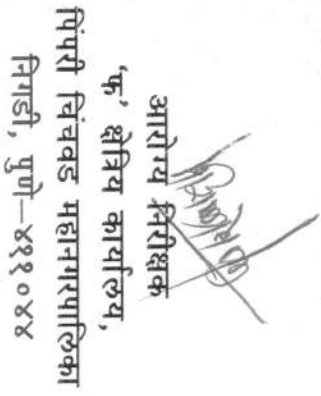 आरोग्य निरीक्षक
'फ' क्षेत्रिय कार्यालय,
पिंपरी चिंचवड महानगरपालिका
निगडी, पुणे–४११०४४